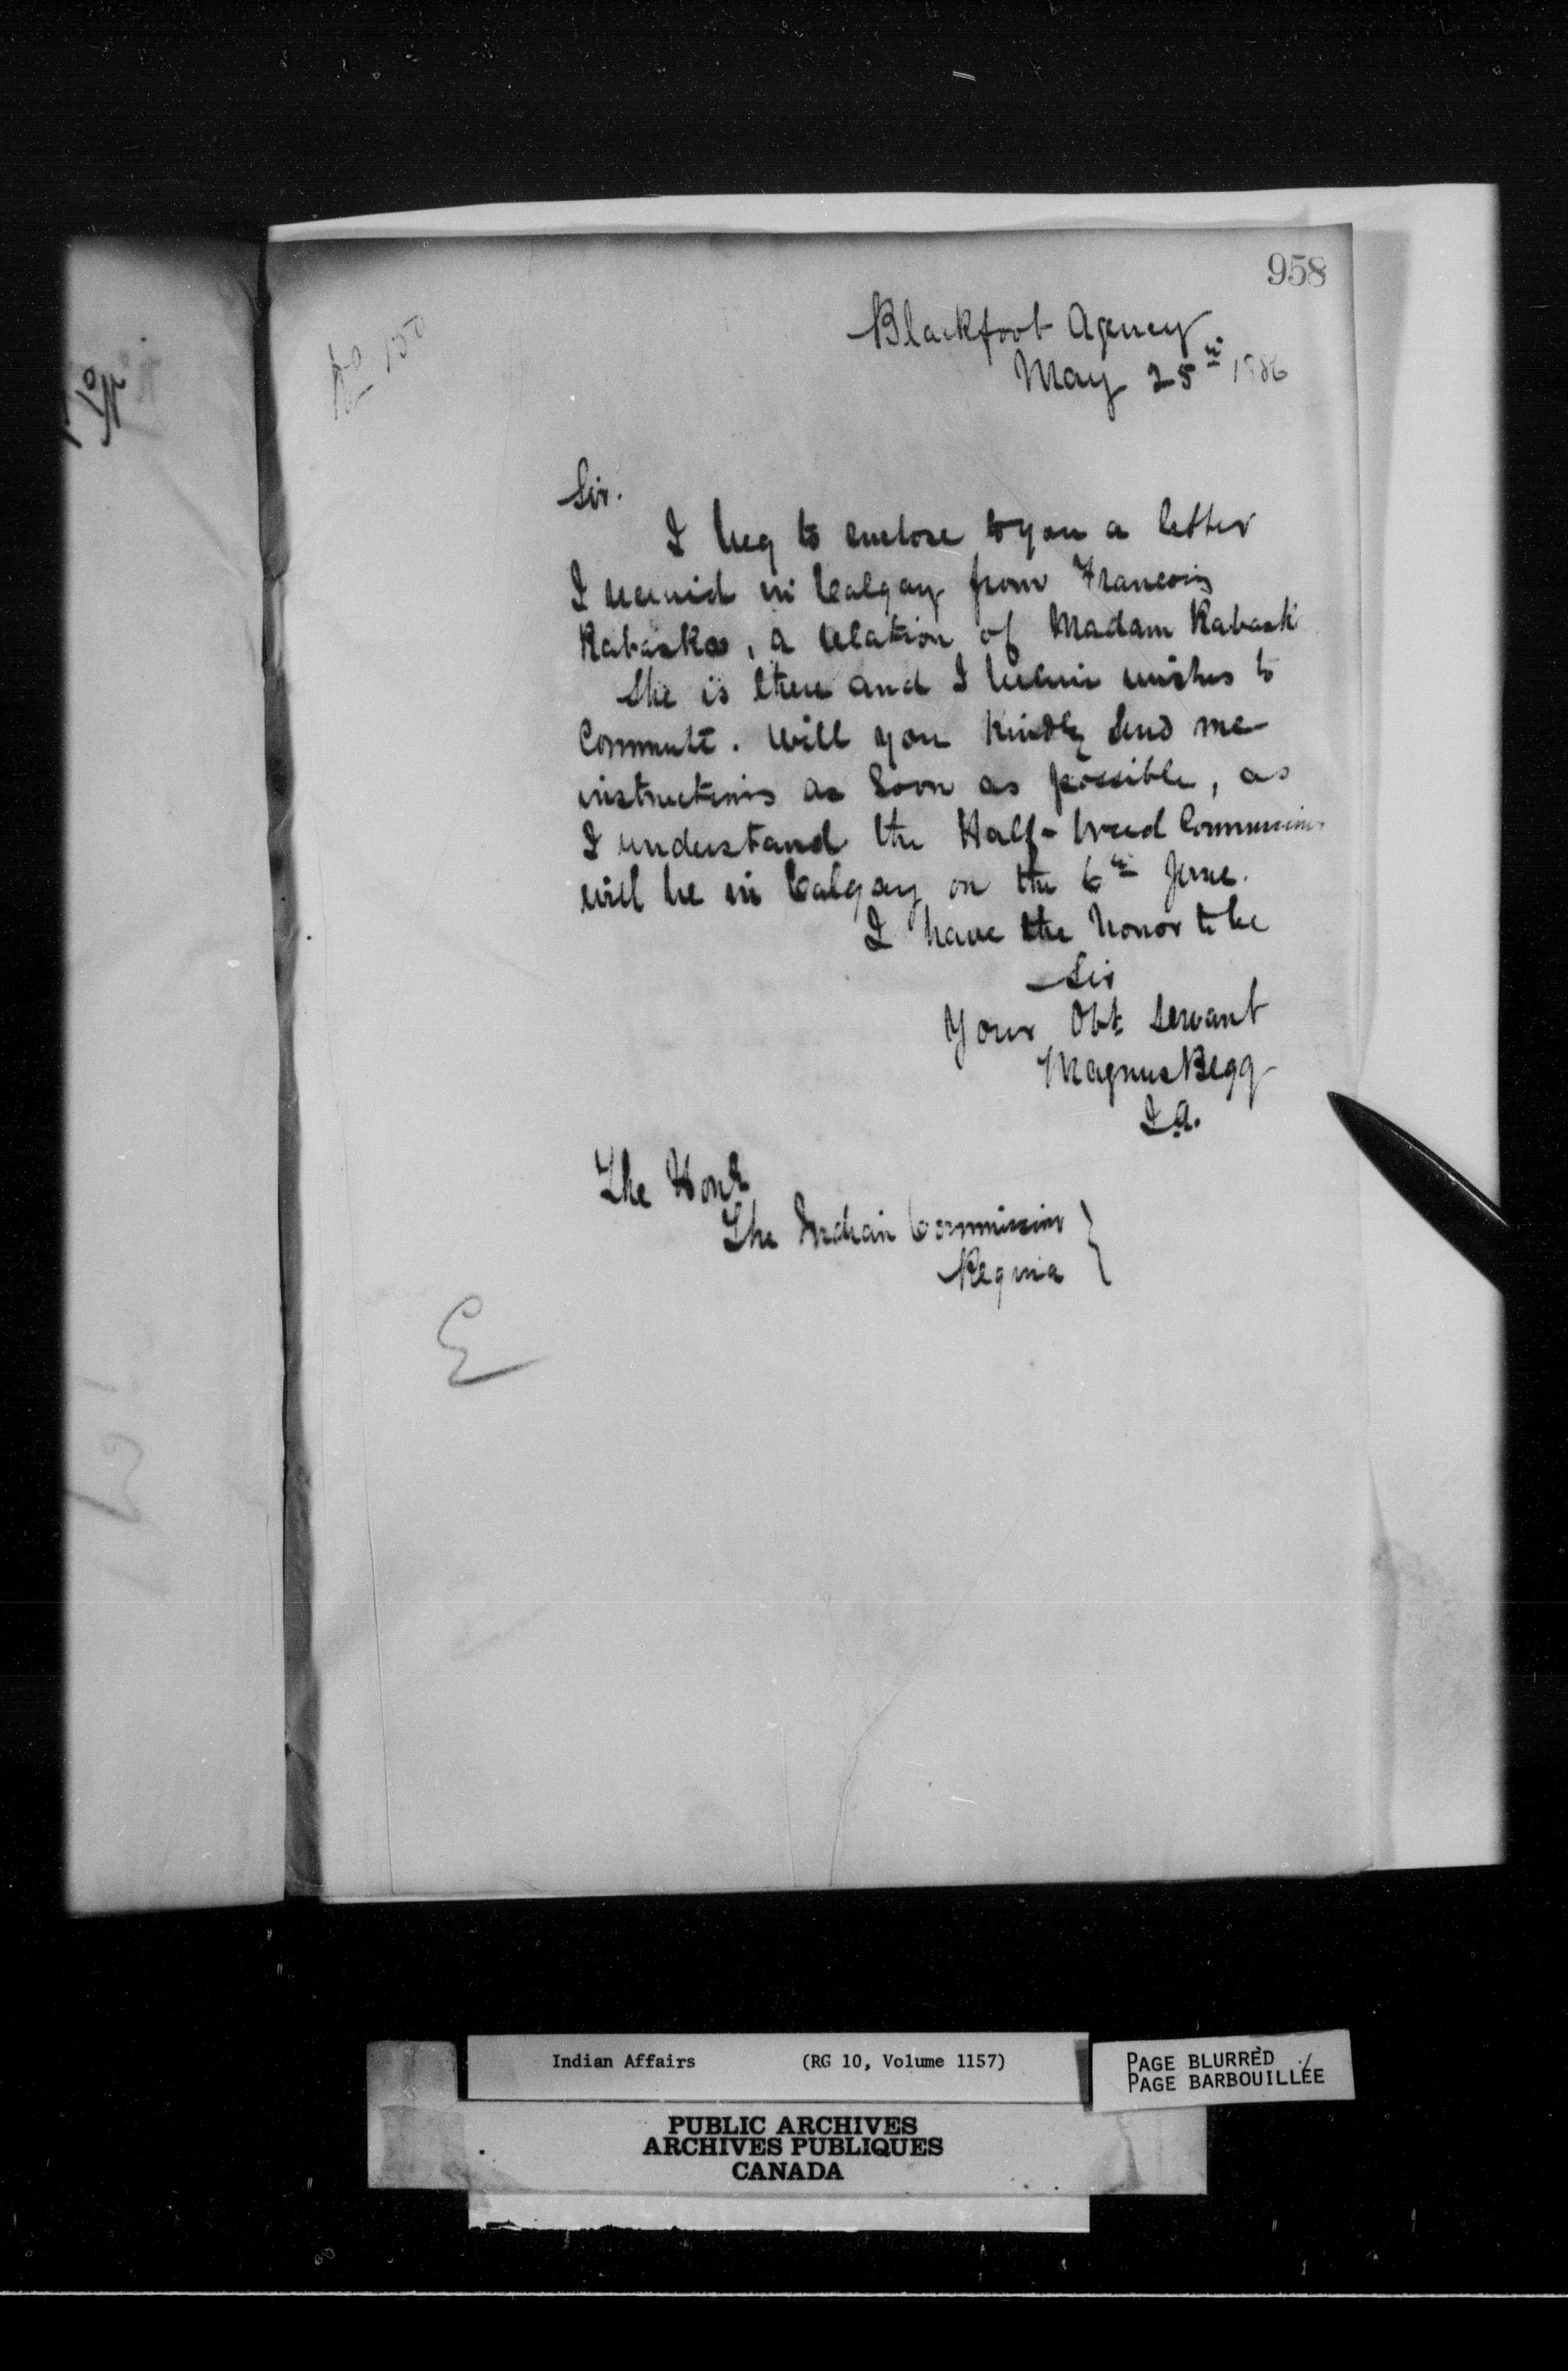 958
No 150
Blackfoot Agency
May 25th 1886
Sir.
I beg to enclose to you a letter
I received in Calgary from Francois
Kabaska, a relation of Madam Kabask
She is there and I believe wishes to
Commute. Will you Kindly Send me
instructions as Soon as possible, as
I understand the Half-breed Commission
will be in Calgary on the 6th June.
I have the honor to be
Sir
Your Obt Servant
Magnus Begg
I.A.
The Honl
The Indian Commissioner
Regina
E
Indian Affairs (RG 10, Volume 1157)
PAGE BLURRED
PAGE BARBOUILLÉE
PUBLIC ARCHIVES
ARCHIVES PUBLIQUES
CANADA